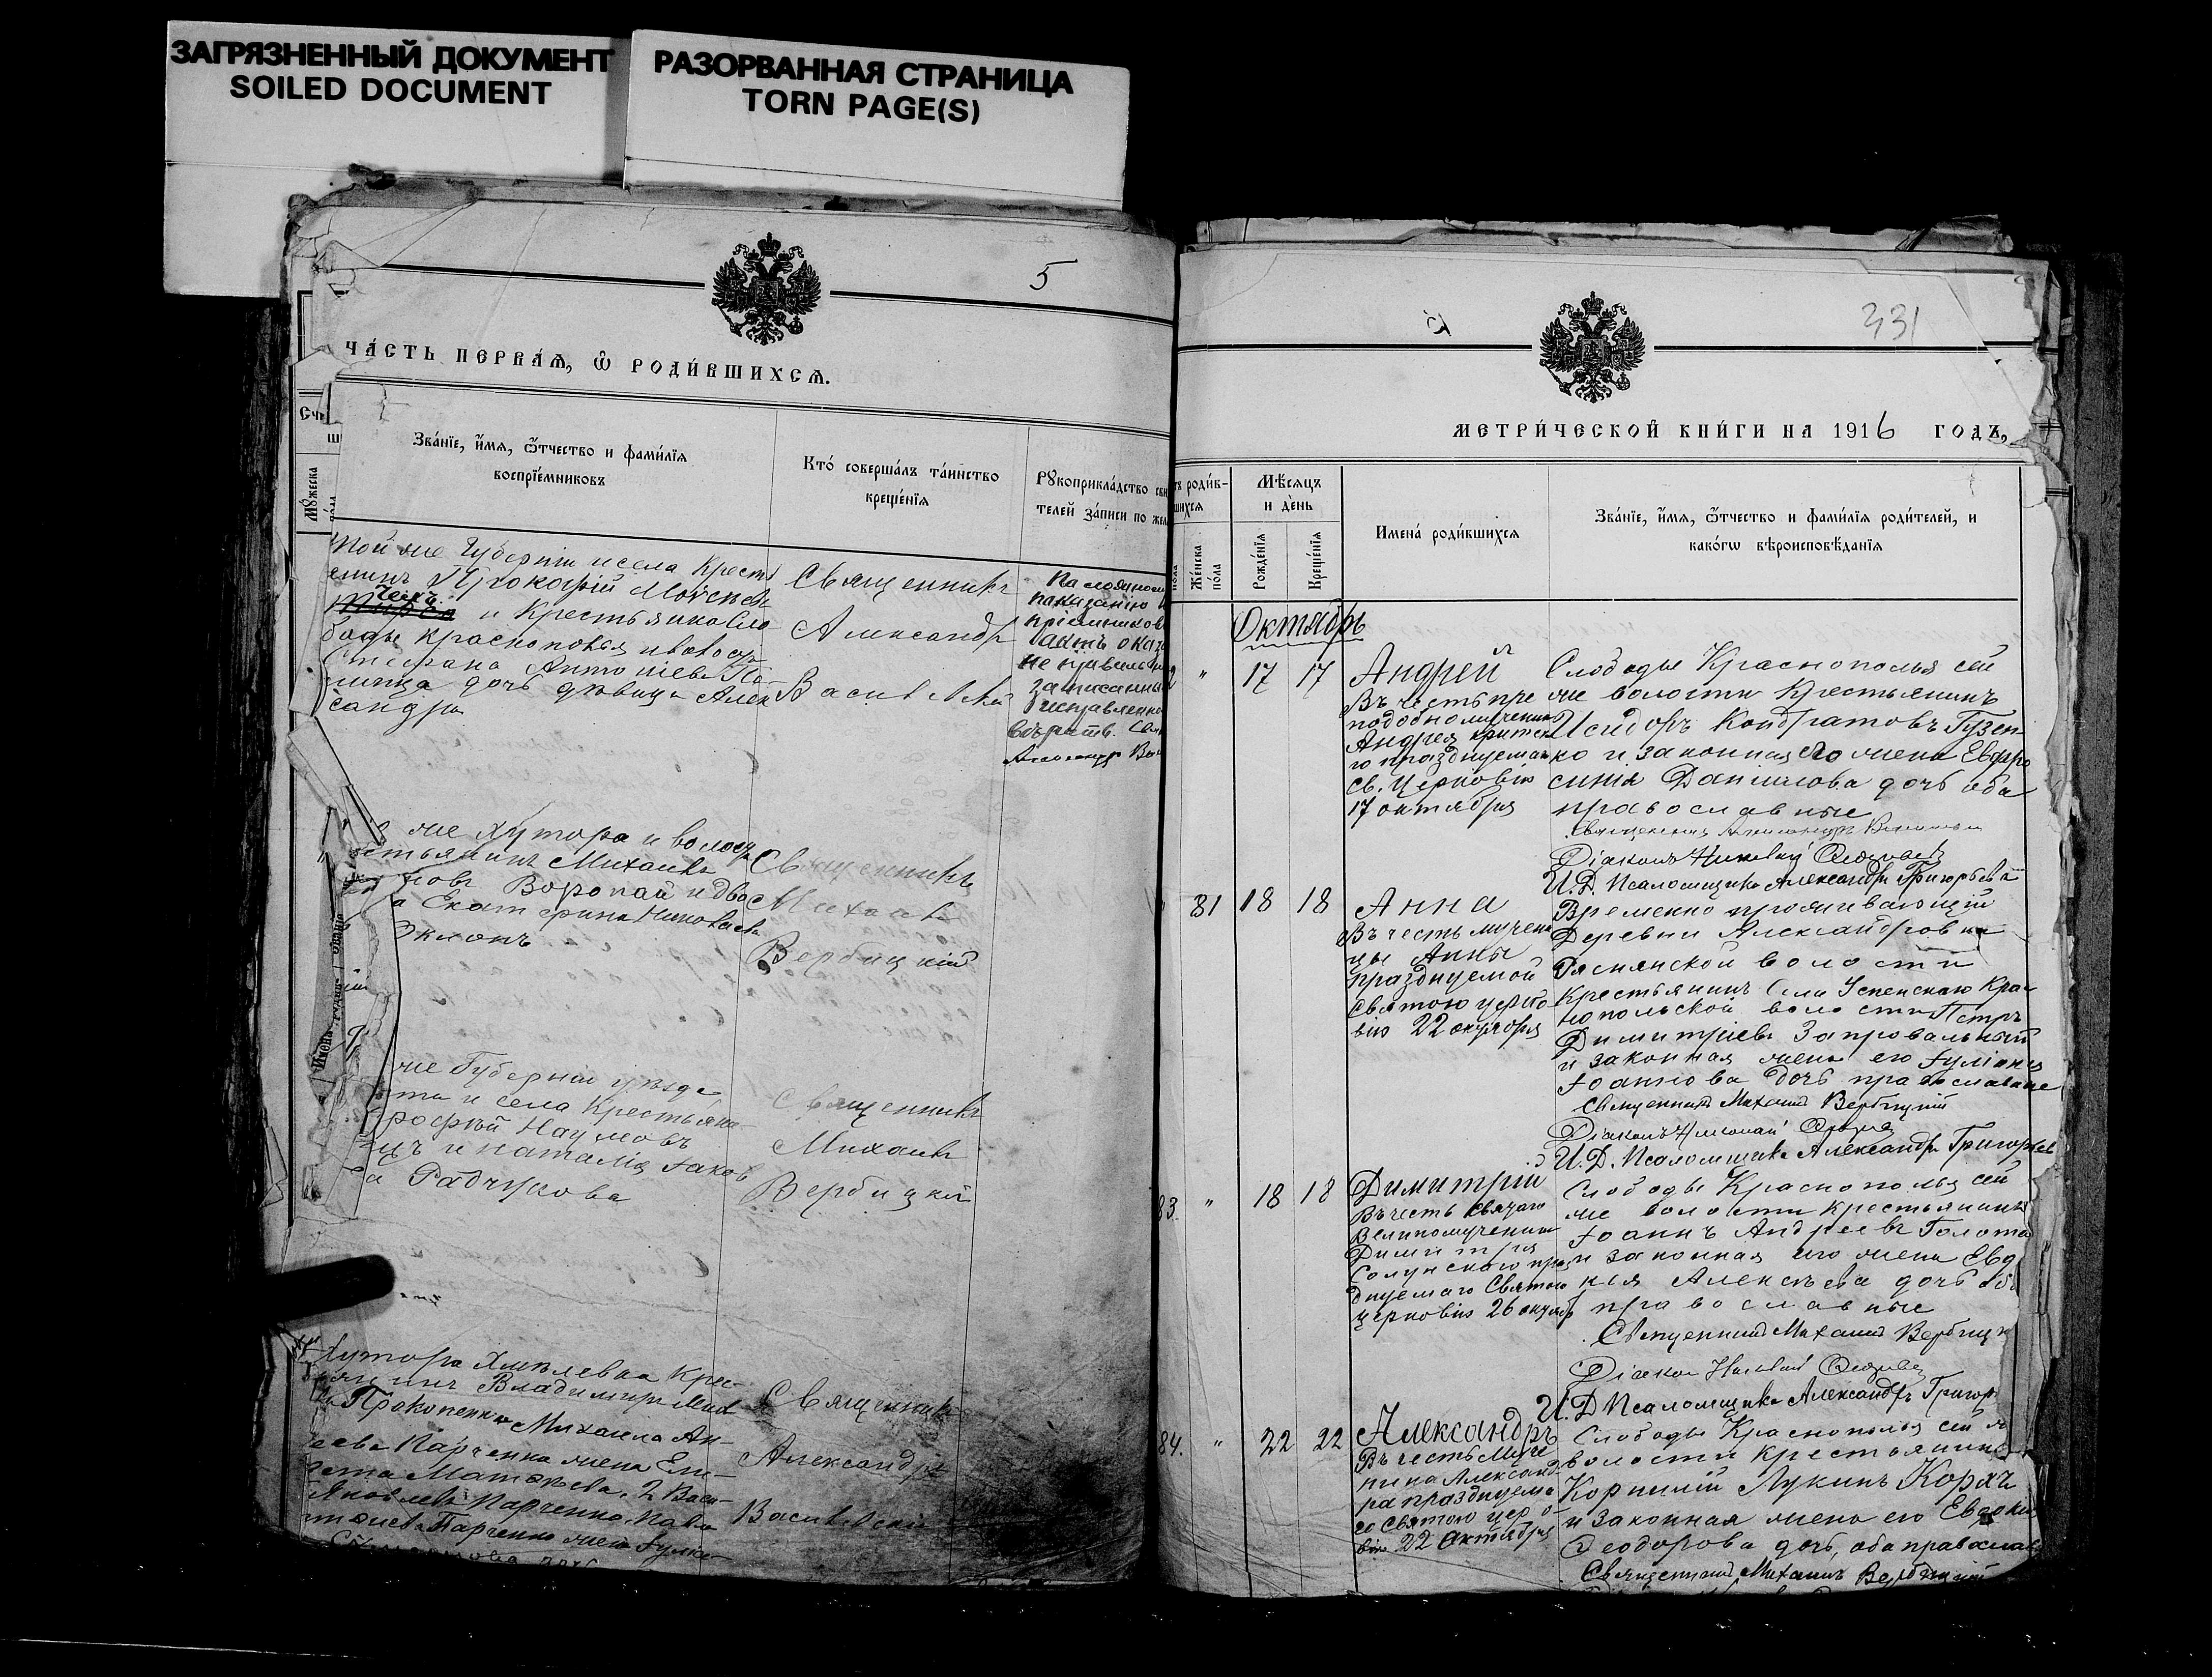 ЗАГРЯЗНЕННЫЙ ДОКУМЕНТ
SOILED DOCUMENT
РАЗОРВАННАЯ СТРАНИЦА
TORN PAGE(S)
5
ЧА́СТЬ ПЕРВА́Ѧ, Ѽ РОДИ́ВШИХСѦ.
Зва́нїе, и҆́мѧ, ѻ҆́тчество и фами́лїѧ
воспрїе́мниковъ
Кто̀ соверша́лъ та́инство
креще́нїѧ
Рꙋкоприкла́дство сви
телей за́писи по жел
Мꙋ́жеска
пола
той же Губерніи и села Кресть
янинъ Прокофій Моѵсеевъ
и Крестьянка Сло
боды Краснополья
Стефана Антоніева
дочь дѣвица Алек
сандра
Священникъ
Александръ
Василевскій
приемников
не правильн
записанна
исправленно
же хутора и волости
стьянинъ Михаилъ
Воропай и дво
а Екатерина Николаева
Эклонъ
Священникъ
Михаилъ
Вербицкій
же Губерніи уѣзда
и села Крестьяне
Наумовъ
и Наталія Іаков
Радчукова
Священникъ
Михаилъ
Вербицкій
Хутора Хмѣлевка Крес-
янинъ Владимиръ Мих
Прокопенко Михаила Ан-
Парченка жена Ели-
вета Матвѣева. 2 Васи-
Яковлевъ Парченко, Пав
Парченко жена Іули-
Священникъ
Александръ
Василевскій
331
МЕТРИ́ЧЕСКОЙ КНИ́ГИ НА 1916 ГО́ДЪ,
ъ роди́в-
шихсѧ
Же́нска
по́ла
Мѣ́сѧцъ
и де́нь
Рожде́нїѧ
Креще́нїѧ
Имена̀ роди́вшихсѧ
Зва́нїе, и҆́мѧ, ѻ҆́тчество и фами́лїѧ роди́телей, и
како́гѡ вѣроисповѣ́данїѧ
Октябрь
2 " 17 17
Андрей
Въ честь пре
подобномученика
Андрея критск
го празднуемаго
св. Церковію
17 октября
Слободы Краснополья сей
же волости Крестьянинъ
Исидоръ Кондратовъ Гузен-
ко и законная его жена Евфро
синія Даниилова дочь оба
православные
Священникъ Александръ Василевскій
Діаконъ Николай
И.Д. Псаломщика Александръ Григорьевъ
81 18 18
Анна
Въ честь мучени
цы Анны
празднуемой
Святою церко
вію 22 октября
Временно проживающій
Деревни Александровки
Ряснянской волости
Крестьянинъ Села Успенскаго Крас
нопольской волости Петръ
Димитріевъ Запровальный
и законная жена его Іуліанія
Іоаннова дочь православные
Священникъ Михаилъ Вербицкій
Діаконъ Николай
И.Д. Псаломщика Александръ Григорьев
83. " 18 18
Димитрій
Въ честь Святаго
Великомученика
Димитрія
Солунскаго праз
днуемаго Святою
церковію 26 октяб
Слободы Краснополья сей
же волости крестьянинъ
Іоаннъ Андреевъ Голота
и законная его жена Евд
кія Алексѣева дочь об
православные
Священникъ Михаилъ Вербицк
Діаконъ Николай
И.Д Псаломщика Александръ Григор
84. " 22 22
Александръ
Въ честь Муче
ника Александ-
ра празднуема
го Святою церо-
вію 22 Октября
Слободы Краснополья сей ж
волости крестьянинъ
Корнилій Лукинъ Корячъ
и законная жена его Евдокія
Ѳеодорова дочь, оба православ
Священникъ Михаилъ Вербицкій